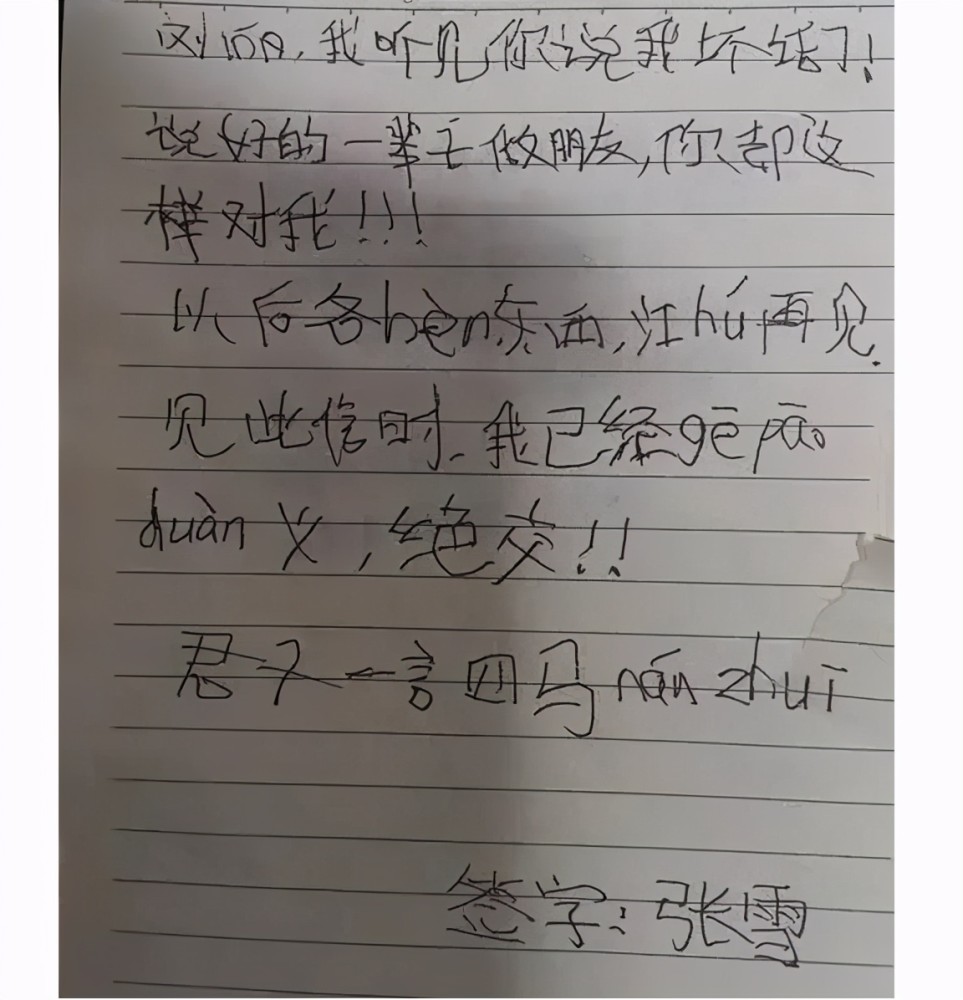 刘，我听见你说我坏话了！
说好的一辈子做朋友，你却这
样对我！！！
以后各bèn东西，江hú再见.
见此信时.我已经gē pāo
duàn义，绝交！！
君子一言四马nán zhuī
签字：张雪